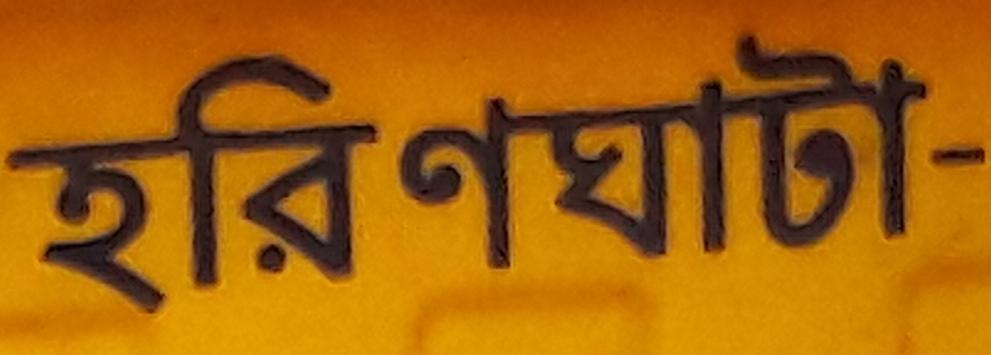 হরিণঘাটা-